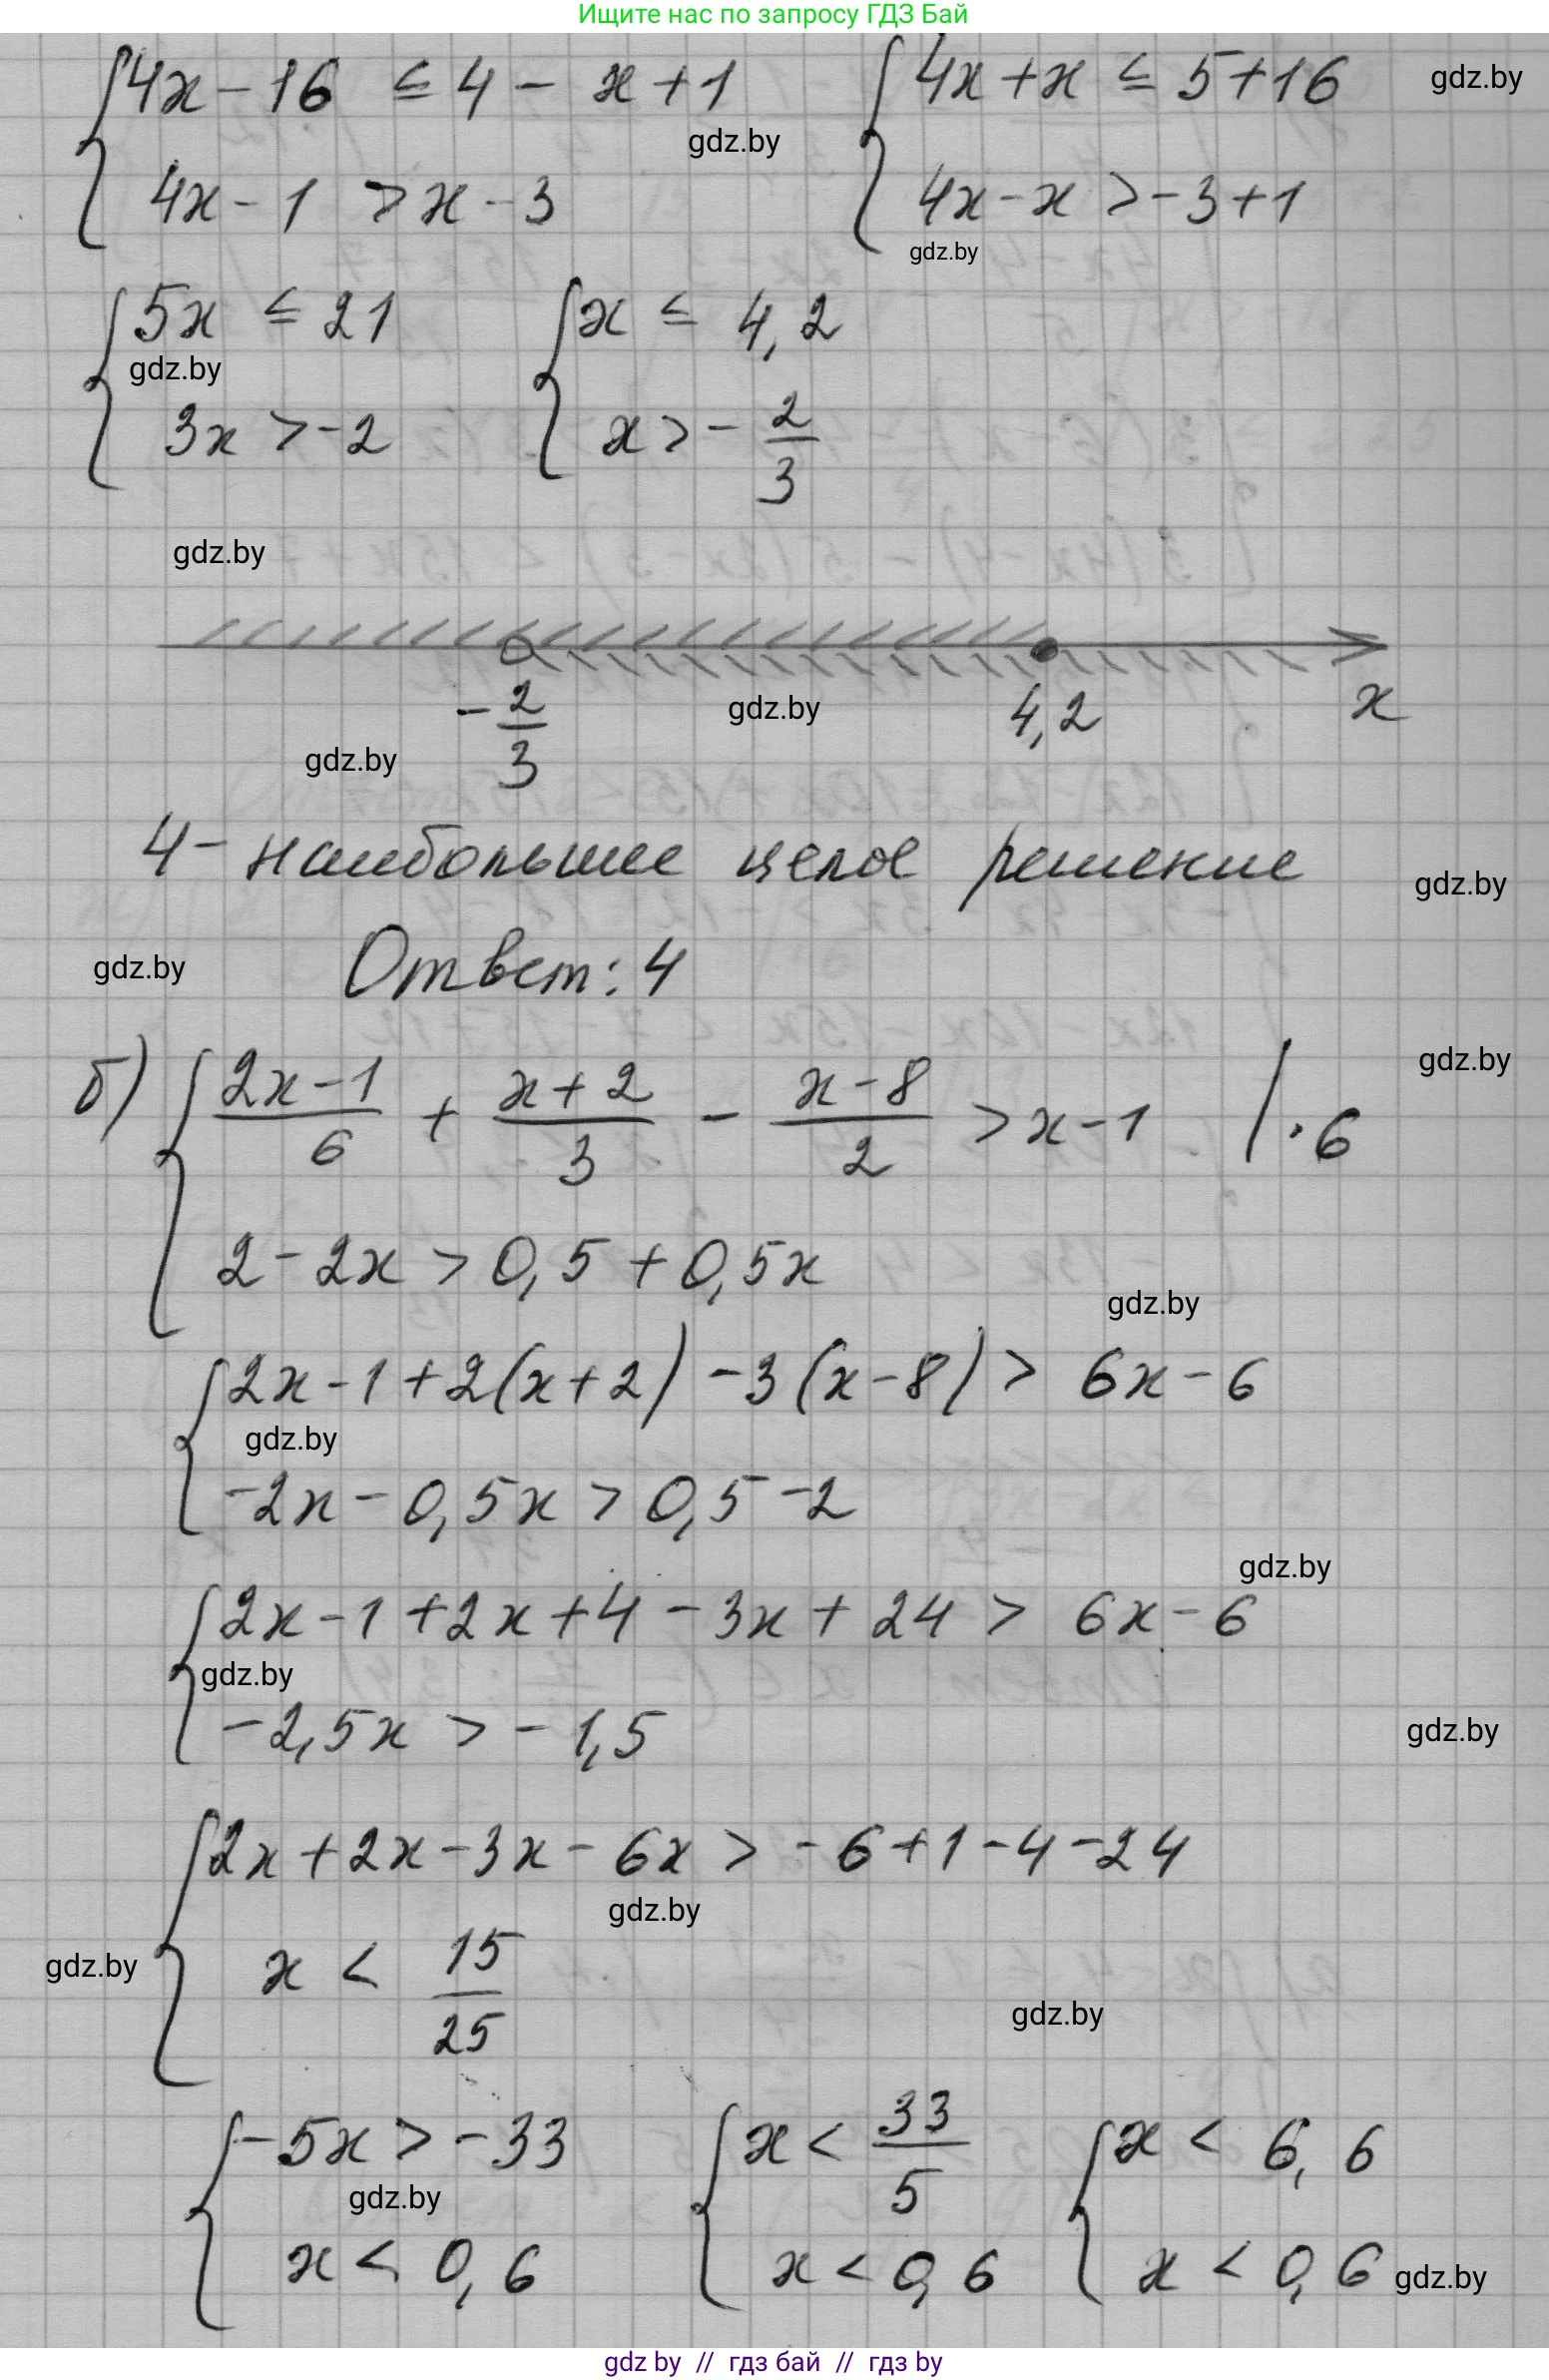 Ищите нас по запросу ГДЗ Бай
{4x - 16 ≤ 4 - x + 1 {4x + x ≤ 5 + 16 gdz.by
gdz.by
4x - 1 > x - 3 4x - x > -3 + 1
gdz.by
{5x ≤ 21 {x ≤ 4,2
gdz.by
3x > -2 x > -2/3
gdz.by
-2/3 gdz.by 4,2 x
gdz.by
4 - наибольшее целое решение
gdz.by
gdz.by Ответ: 4
gdz.by
б) {(2x-1)/6 + (x+2)/3 - (x-8)/2 > x - 1 | · 6
2 - 2x > 0,5 + 0,5x
gdz.by
{2x - 1 + 2(x + 2) - 3(x - 8) > 6x - 6
gdz.by
-2x - 0,5x > 0,5 - 2
gdz.by
{2x - 1 + 2x + 4 - 3x + 24 > 6x - 6
gdz.by
-2,5x > -1,5 gdz.by
{2x + 2x - 3x - 6x > -6 + 1 - 4 - 24
gdz.by
gdz.by x < 15/25
gdz.by
{-5x > -33 {x < 33/5 {x < 6,6
gdz.by
x < 0,6 x < 0,6 x < 0,6 gdz.by
gdz by // гдз бай // гдз by